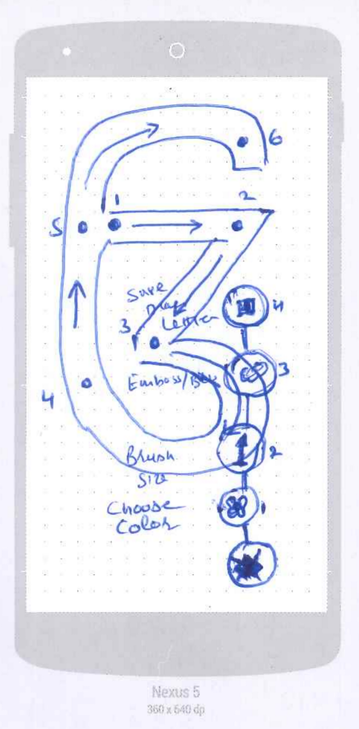 6
1
2
5
Save
Letter
4
3
3
Emboss/
4
Brush
2
Size
Choose
1
Color
Nexus 5
360 x 640 dp